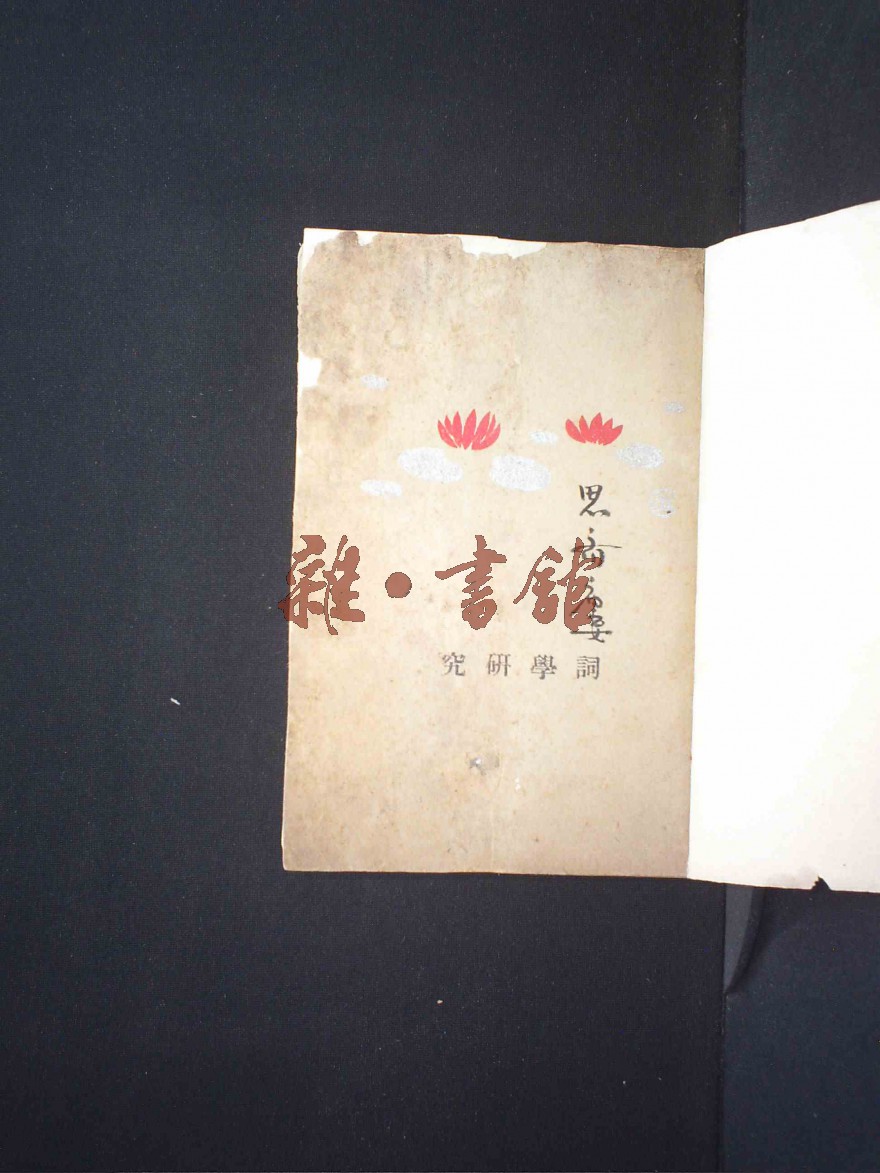 詞學研究
思
雜·書館